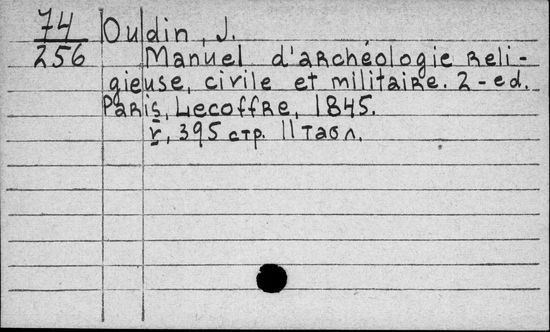 74 Oudin, J.
256 Manuel d'archéologie reli-
gieuse, civile et militaire. 2-ed.
Paris, Lecoffre, 1845.
V, 395 стр. 11 табл.